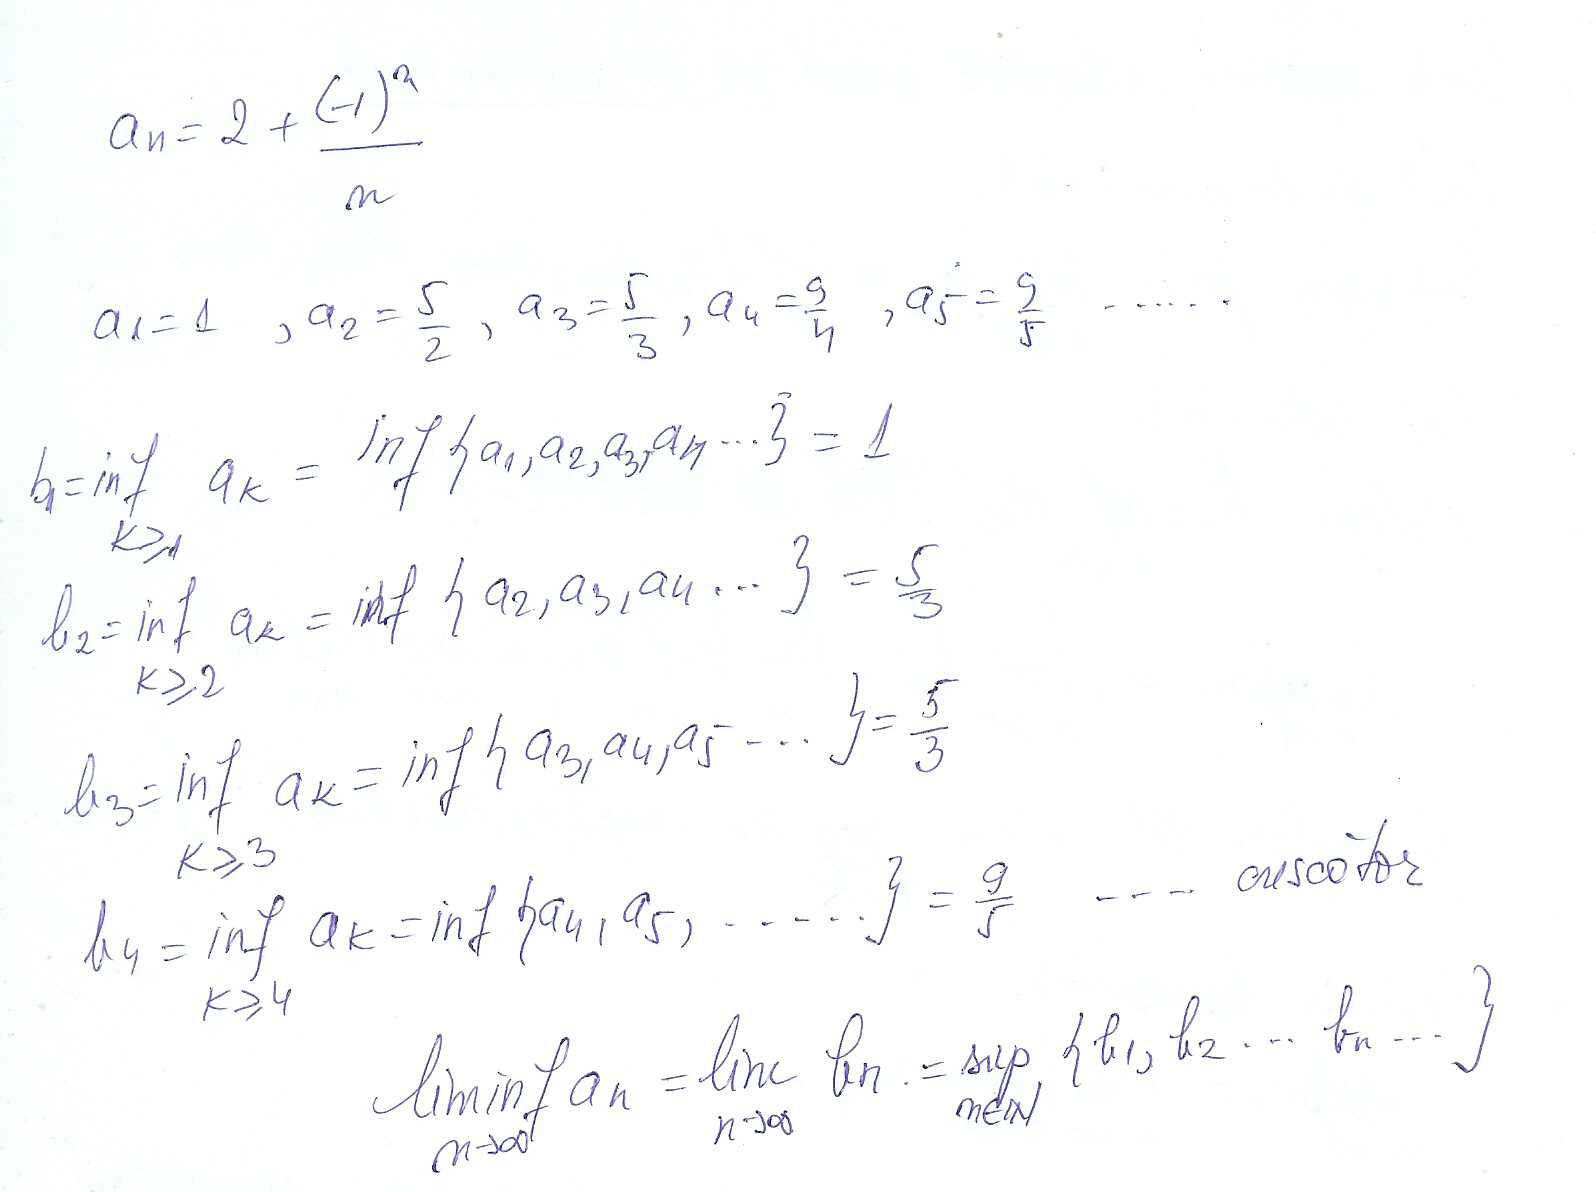 an = 2 + (-1)^n / n
a1 = 1 , a2 = 5/2 , a3 = 5/3 , a4 = 9/4 , a5 = 9/5 ......
b1 = inf k≥1 ak = inf {a1, a2, a3, a4 ...} = 1
b2 = inf k≥2 ak = inf {a2, a3, a4 ... } = 5/3
b3 = inf k≥3 ak = inf {a3, a4, a5 .... } = 5/3
b4 = inf k≥4 ak = inf {a4, a5, ...... } = 9/5 .... crescător
liminf n→∞ an = lim n→∞ bn = sup n∈ℕ {b1, b2 ... bn ... }